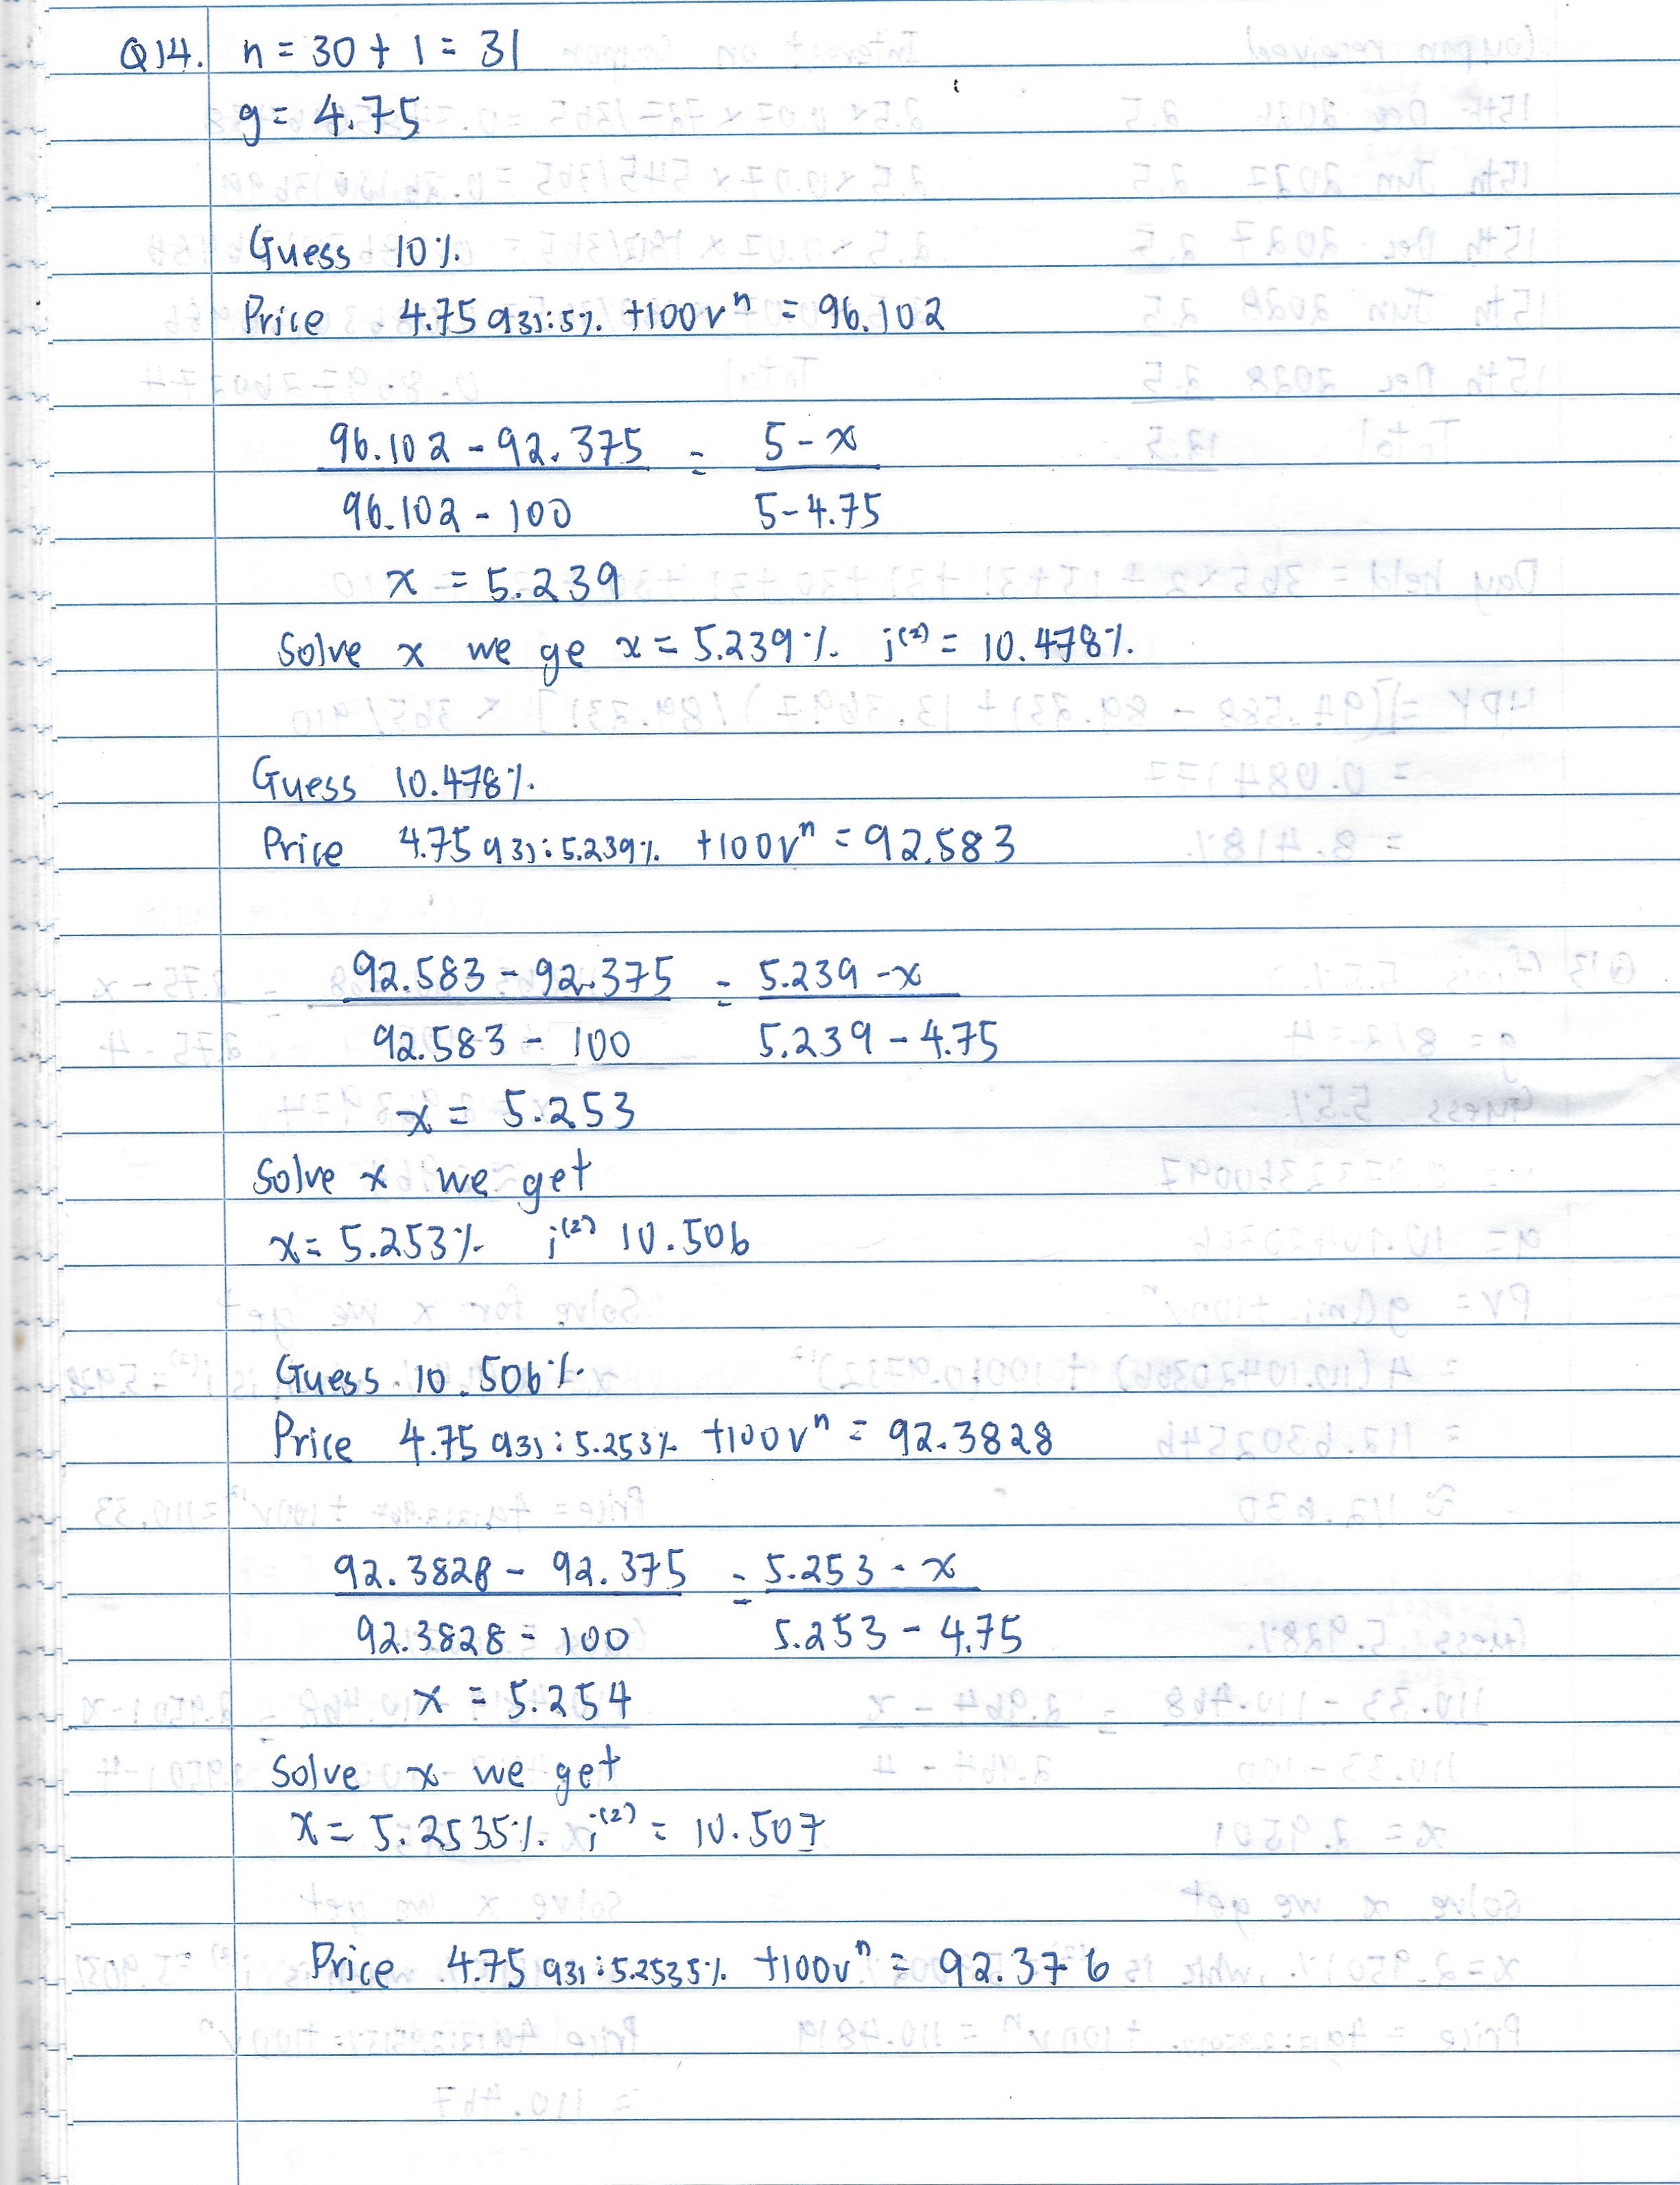 Q14. n = 30 + 1 = 31
g = 4.75
Guess 10%
Price 4.75 a31:5% +100vⁿ = 96.102
96.102 - 92.375 = 5 - x
96.102 - 100 5 - 4.75
x = 5.239
Solve x we ge x = 5.239% j⁽²⁾ = 10.478%
Guess 10.478%
Price 4.75 a31:5.239% +100vⁿ = 92.583
92.583 - 92.375 = 5.239 - x
92.583 - 100 5.239 - 4.75
x = 5.253
Solve x we get
x = 5.253% j⁽²⁾ 10.506
Guess 10.506%
Price 4.75 a31:5.253% +100vⁿ = 92.3828
92.3828 - 92.375 = 5.253 - x
92.3828 - 100 5.253 - 4.75
x = 5.254
Solve x we get
x = 5.2535% j⁽²⁾ = 10.507
Price 4.75 a31:5.2535% +100vⁿ = 92.376